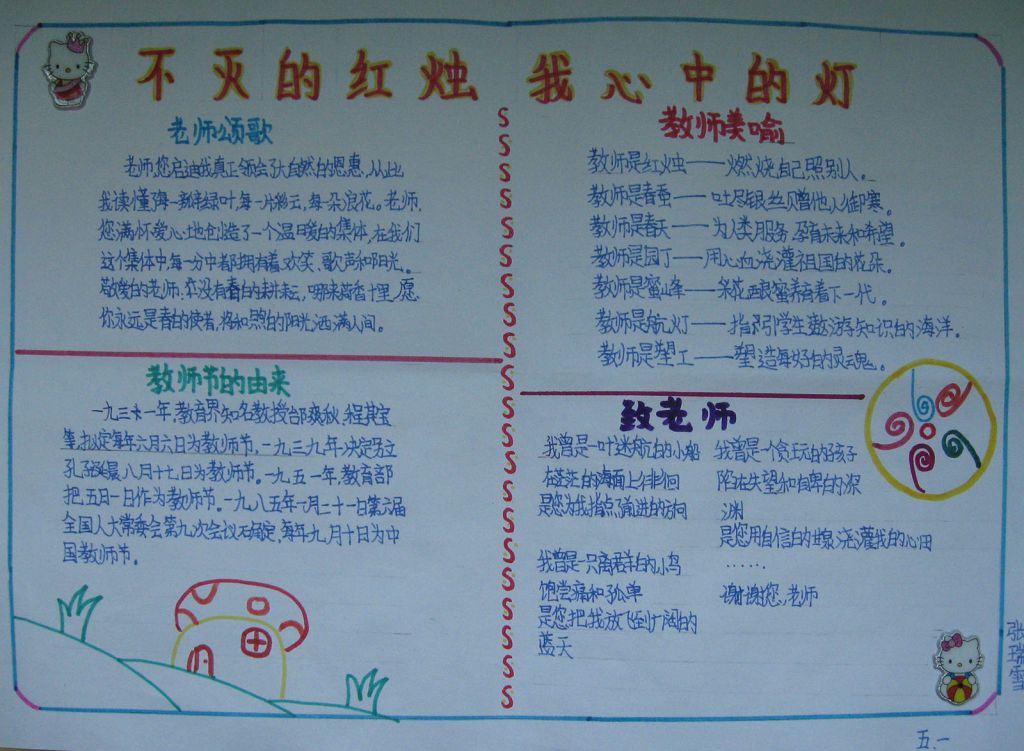 不灭的红烛 我心中的灯
老师颂歌
老师,您启迪我真正领会了大自然的恩惠,从此,
我读懂了每一新绿叶,每一片彩云,每一朵浪花。老师,
您满怀爱心地创造了一个温暖的集体,在我们
这个集体中,每一分中都拥有着欢笑、歌声和阳光。
敬爱的老师,没有春的耕耘,哪来荷香十里,愿
你永远是春的使者,将和煦的阳光洒满人间。
教师节的由来
一九三一年,教育界知名教授邰爽秋、程其宝
等,拟定每年六月六日为教师节,一九三九年决定另立
孔子诞辰八月十七日为教师节。一九五一年,教育部
把五日一日作为教师节。一九八五年一月二十一日第六届
全国人大常委会第九次会议确定,每年九月十日为中
国教师节。
教师美喻
教师是红烛——燃烧自己照别人。
教师是春蚕——吐尽银丝赠他人御寒。
教师是春天——为人类服务,孕育未来和希望。
教师是园丁——用心血浇灌祖国的花朵。
教师是蜜峰——采花酿蜜养育着下一代。
教师是航灯——指引学生遨游知识的海洋。
教师是塑工——塑造每好的灵魂。
致老师
我曾是一叶迷航的小船
在茫茫的海面上徘徊
是您为我指点前进的方向
我曾是一只离群的小鸟
饱尝痛和孤单
是您把我放飞到广阔的
蓝天
我曾是一个贪玩的孩子
陷在失望和自卑的深
渊
是您用自信的泉浇灌我的心田
……
谢谢您,老师
张瑞雪
五.一